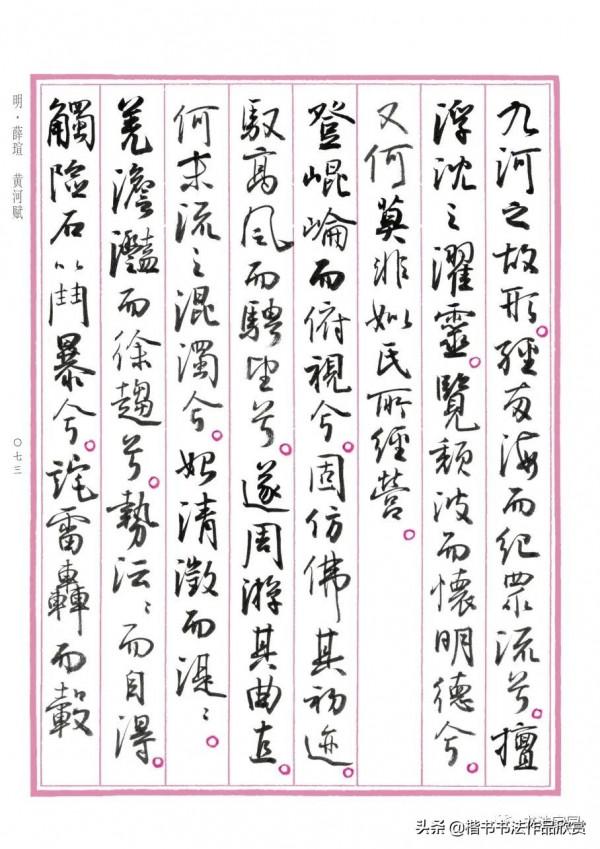 九河之故形。經兩海而紀眾流兮。擅
浮沈之濯靈。覽頹波而懷明德兮。
又何莫非姒氏所經營。
登崐崘而俯視兮。固仿佛其初迹。
馭高風而騁望兮。遂周游其曲直。
何末流之混濁兮。始清澂而湜湜。
羌澹灩而徐趨兮。勢沄沄而自得。
觸險石以鬪暴兮。詫雷轟而轂
明·薛瑄 黄河赋
〇七三
头条 @楷书书法作品欣赏